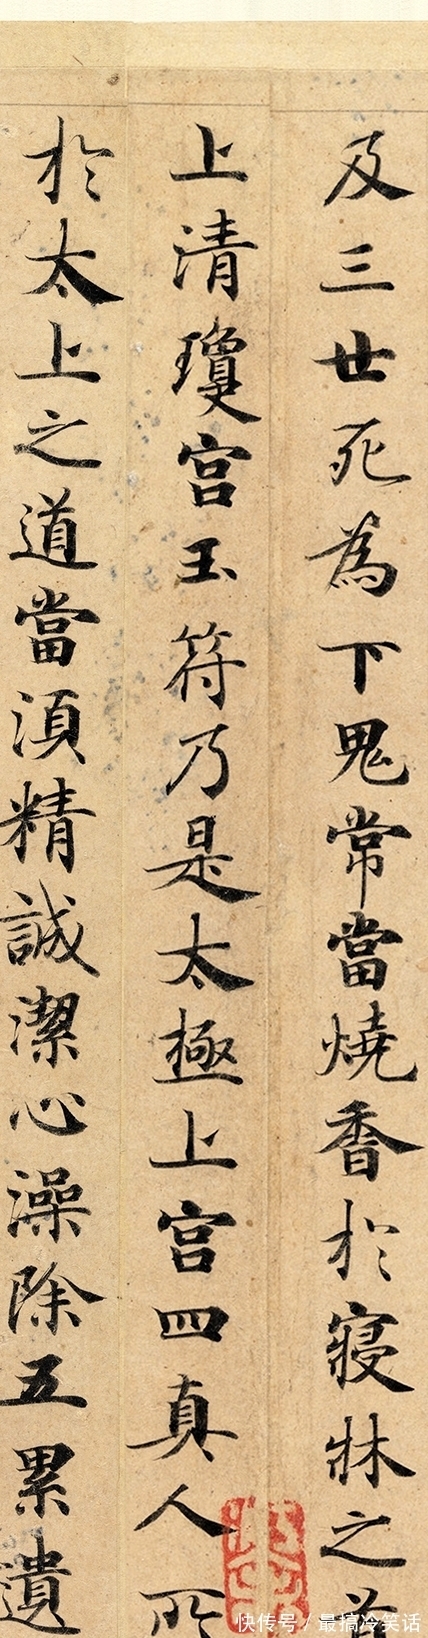 及三世死為下鬼常當燒香於寢牀之
上清瓊宮玉符乃是太極上宮四真人所
於太上之道當須精誠潔心澡除五累遺
快传号 / 最搞冷笑话